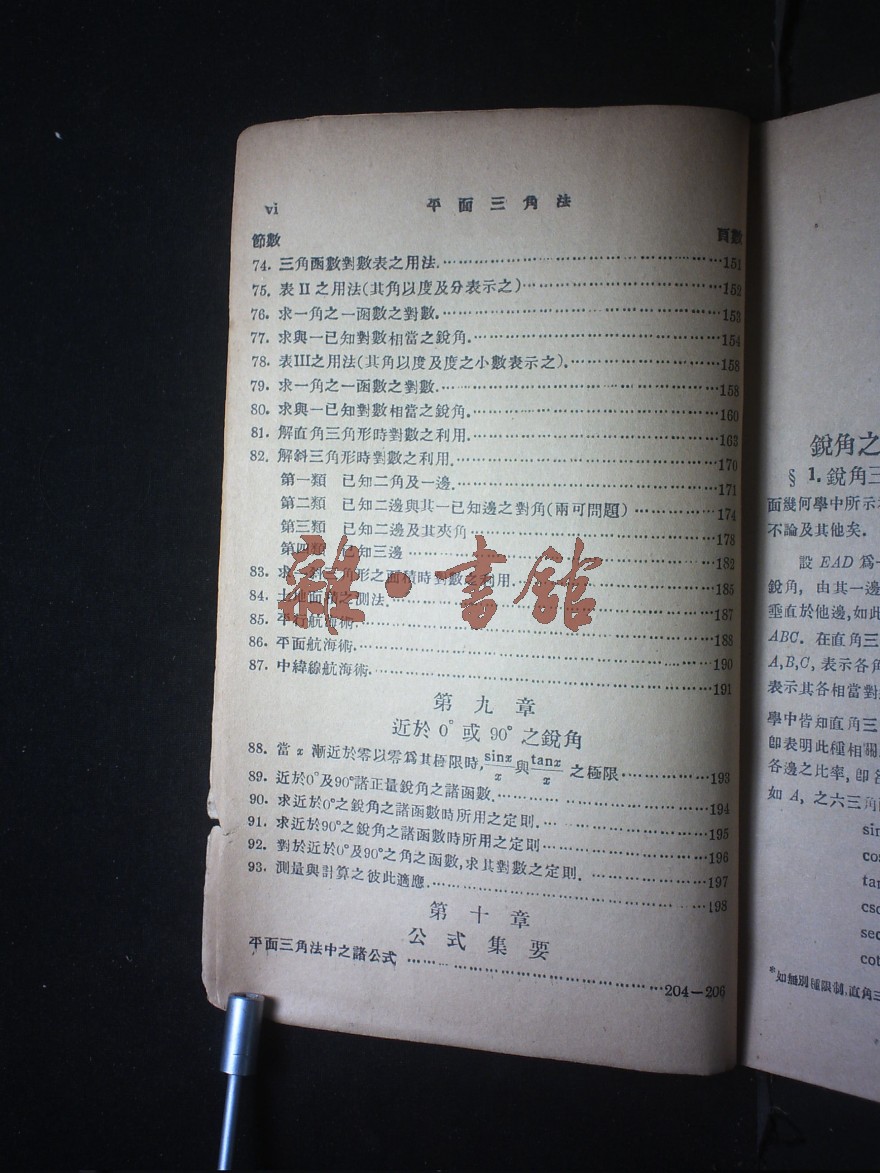 vi 平面三角法
節數 頁數
74. 三角函數對數表之用法. 151
75. 表 II 之用法(其角以度及分表示之) 152
76. 求一角之一函數之對數. 153
77. 求與一已知對數相當之銳角. 154
78. 表III之用法(其角以度及度之小數表示之). 158
79. 求一角之一函數之對數. 158
80. 求與一已知對數相當之銳角. 160
81. 解直角三角形時對數之利用. 163
82. 解斜三角形時對數之利用. 170
第一類 已知二角及一邊. 171
第二類 已知二邊與其一已知邊之對角(兩可問題) 174
第三類 已知二邊及其夾角 178
第四類 已知三邊 182
83. 求一斜三角形之面積時對數之利用. 185
84. 土地面積之測法. 187
85. 平行航海術. 188
86. 平面航海術. 190
87. 中緯線航海術. 191
雜·書館
第九章
近於 0° 或 90° 之銳角
88. 當 x 漸近於零以零爲其極限時, sinx/x 與 tanx/x 之極限 193
89. 近於0°及90°諸正量銳角之諸函數. 194
90. 求近於0°之銳角之諸函數時所用之定則. 195
91. 求近於90°之銳角之諸函數時所用之定則 196
92. 對於近於0°及90°之角之函數,求其對數之定則. 197
93. 測量與計算之彼此適應. 198
第十章
公式集要
平面三角法中之諸公式 204—206
銳角之
§ 1. 銳角三
面幾何學中所示
不論及其他矣.
設 EAD 爲
銳角, 由其一邊
垂直於他邊,如此
ABC. 在直角三
A,B,C, 表示各角
表示其各相當對
學中皆知直角三
卽表明此種相關
各邊之比率, 卽
如 A, 之六三角
sin
cos
tan
csc
sec
cot
*如無別種限制,直角三